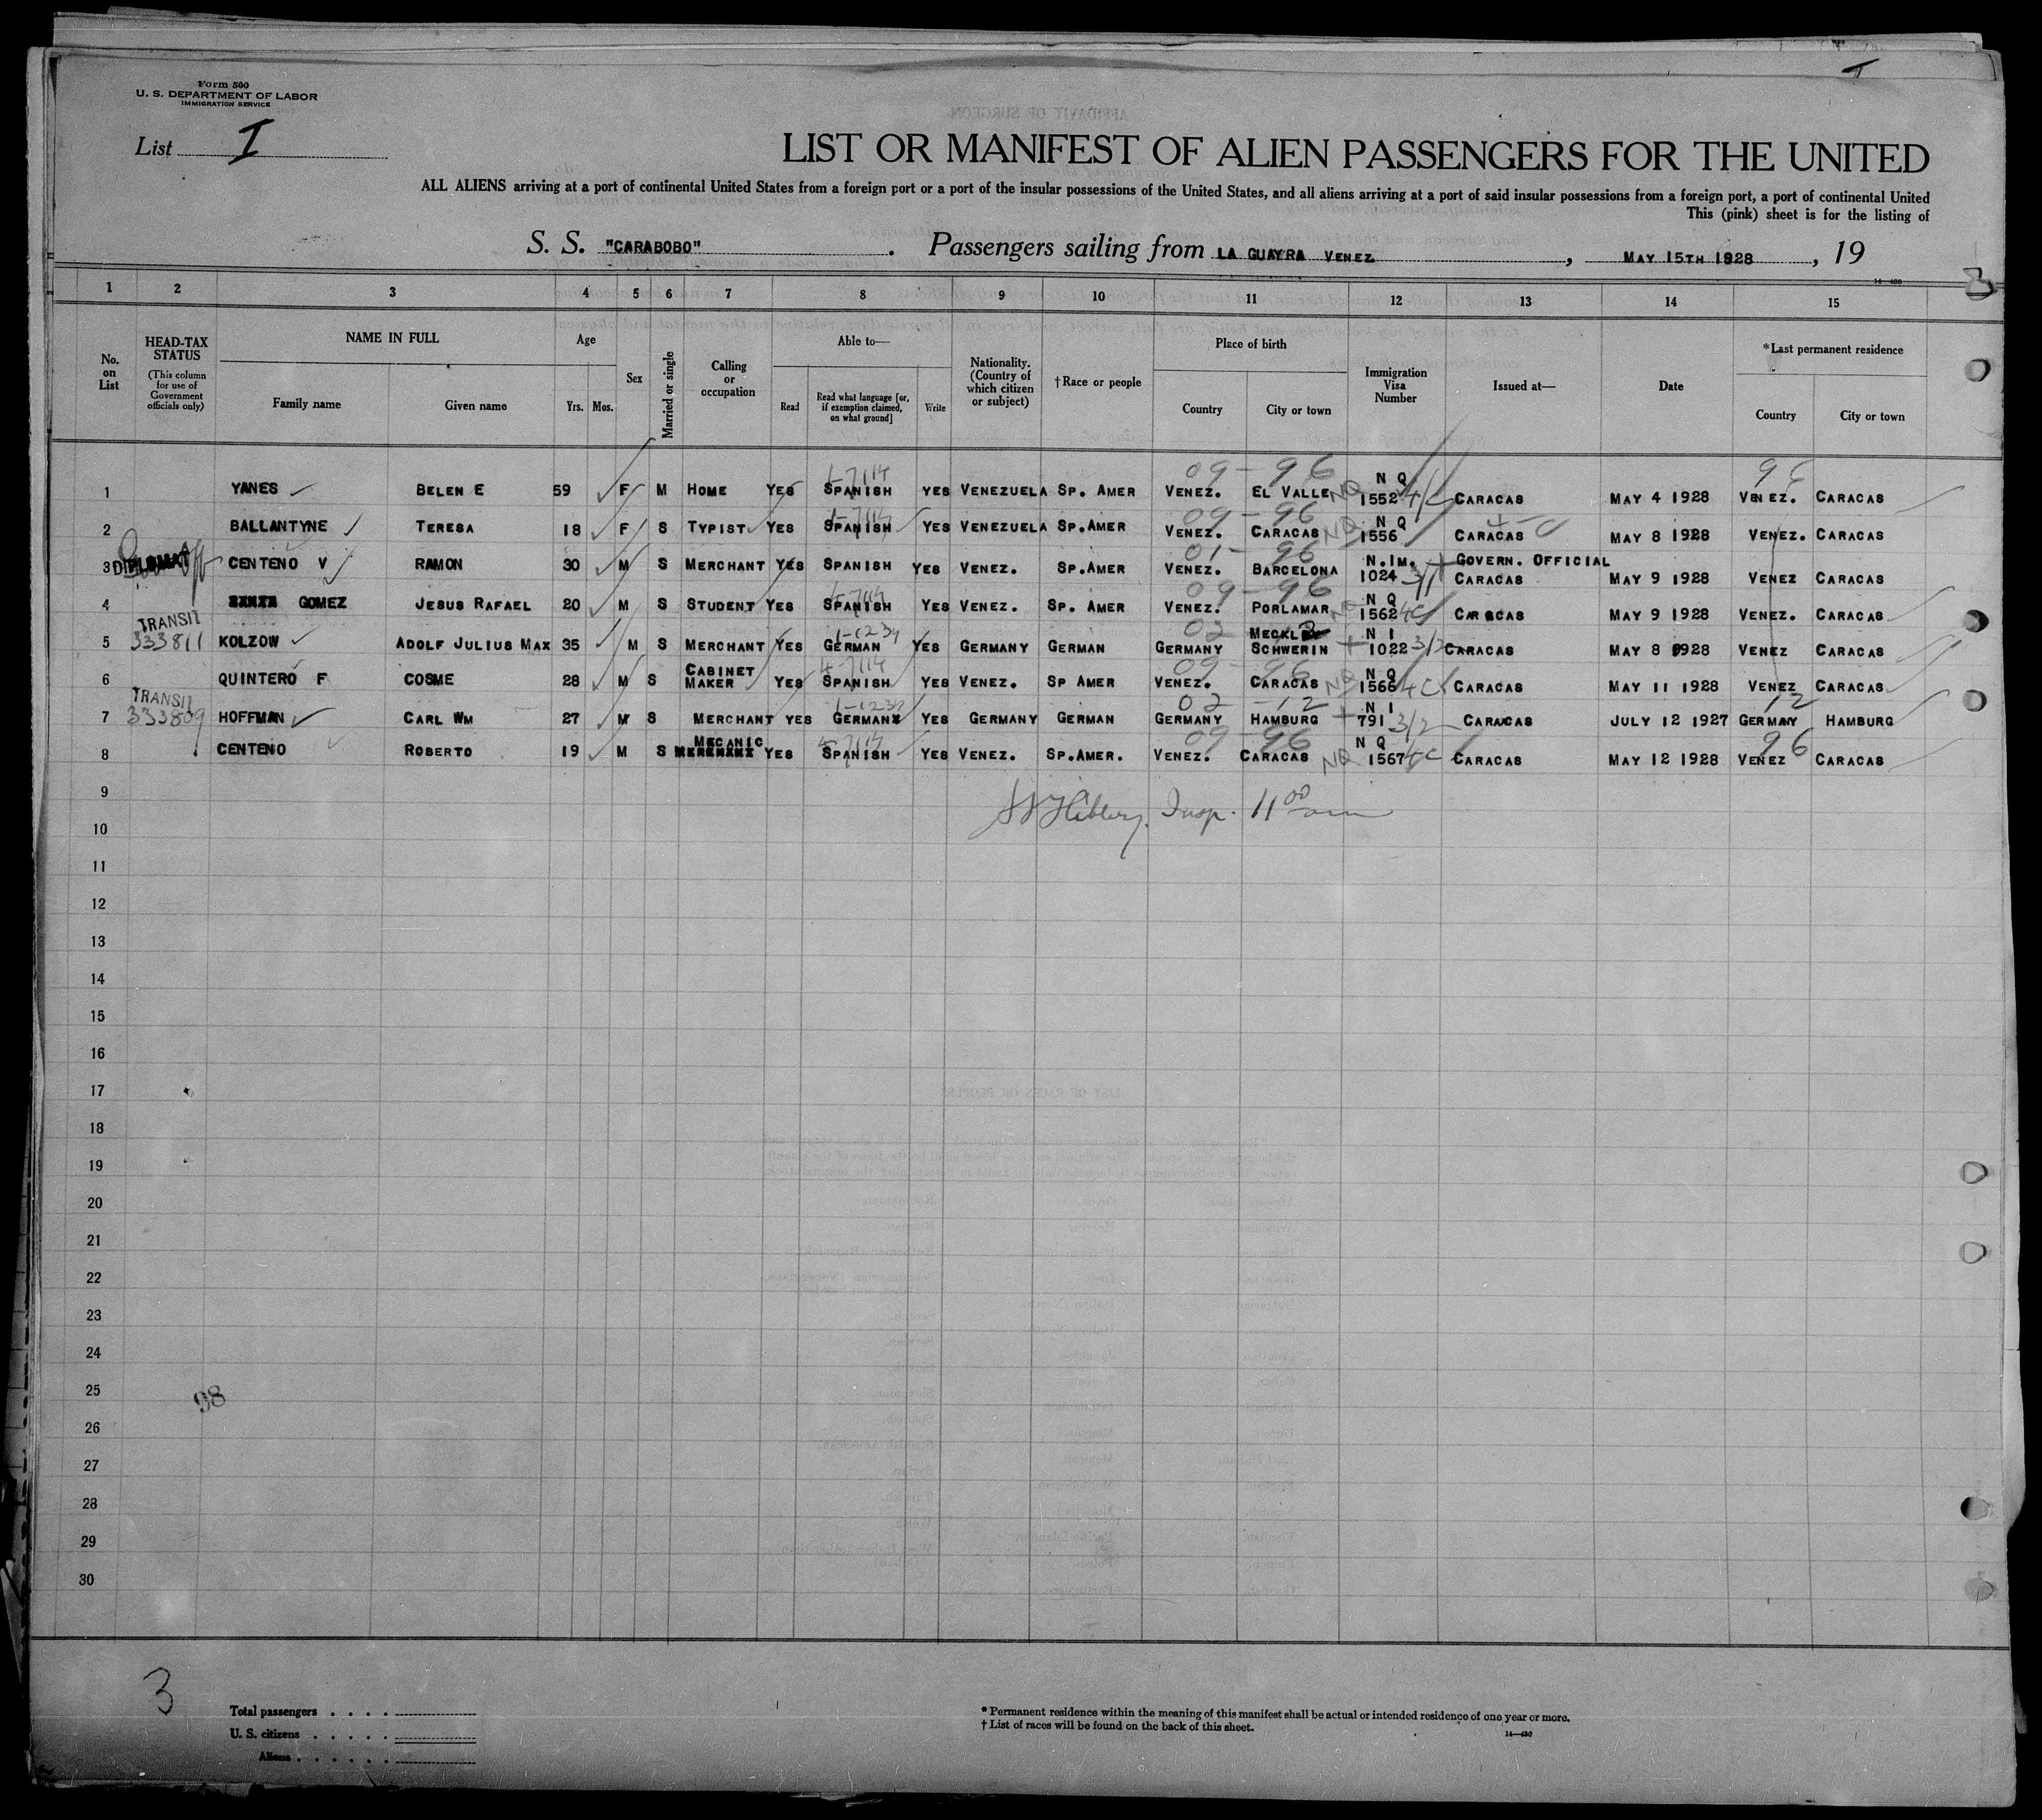 I
Form 500
U. S. DEPARTMENT OF LABOR
IMMIGRATION SERVICE
List I
LIST OR MANIFEST OF ALIEN PASSENGERS FOR THE UNITED
ALL ALIENS arriving at a port of continental United States from a foreign port or a port of the insular possessions of the United States, and all aliens arriving at a port of said insular possessions from a foreign port, a port of continental United
This (pink) sheet is for the listing of
S. S. "CARABOBO". Passengers sailing from LA GUAYRA VENEZ, MAY 15TH 1928, 19
14—490
1 2 3 4 5 6 7 8 9 10 11 12 13 14 15
No. on List
HEAD-TAX STATUS
(This column for use of Government officials only)
NAME IN FULL
Family name Given name
Age
Yrs. Mos.
Sex
Married or single
Calling or occupation
Able to—
Read
Read what language [or, if exemption claimed, on what ground]
Write
Nationality. (Country of which citizen or subject)
†Race or people
Place of birth
Country City or town
Immigration Visa Number
Issued at—
Date
*Last permanent residence
Country City or town
4-7114 09-96 96
1 YANES BELEN E 59 F M HOME YES SPANISH YES VENEZUELA SP. AMER VENEZ. EL VALLE NQ N Q 1552 4/c CARACAS MAY 4 1928 VENEZ. CARACAS
4-7114 09-96
2 BALLANTYNE TERESA 18 F S TYPIST YES SPANISH YES VENEZUELA SP.AMER VENEZ. CARACAS NQ N Q 1556 CARACAS 4-C MAY 8 1928 VENEZ. CARACAS
01-96
3 DIPLOMAT CENTENO V RAMON 30 M S MERCHANT YES SPANISH YES VENEZ. SP.AMER VENEZ. BARCELONA N.IM. 1024 3/1 GOVERN. OFFICIAL CARACAS MAY 9 1928 VENEZ CARACAS
4-7114 09-96
4 GOMEZ JESUS RAFAEL 20 M S STUDENT YES SPANISH YES VENEZ. SP. AMER VENEZ. PORLAMAR NQ N Q 1562 4C CARACAS MAY 9 1928 VENEZ. CARACAS
TRANSIT 1-1234 02
5 333811 KOLZOW ADOLF JULIUS MAX 35 M S MERCHANT YES GERMAN YES GERMANY GERMAN GERMANY MECKL SCHWERIN N I 1022 3/2 CARACAS MAY 8 1928 VENEZ CARACAS
4-7114 09-96
6 QUINTERO F COSME 28 M S CABINET MAKER YES SPANISH YES VENEZ. SP AMER VENEZ. CARACAS NQ N Q 1566 4C CARACAS MAY 11 1928 VENEZ CARACAS
TRANSIT 1-1234 02-12 12
7 333809 HOFFMAN CARL WM 27 M S MERCHANT YES GERMAN YES GERMANY GERMAN GERMANY HAMBURG N I 791 3/2 CARACAS JULY 12 1927 GERMANY HAMBURG
4-7114 09-96 96
8 CENTENO ROBERTO 19 M S MECANIC YES SPANISH YES VENEZ. SP.AMER. VENEZ. CARACAS NQ N Q 1567 4C CARACAS MAY 12 1928 VENEZ CARACAS
9
Insp. 11 00 am
10
11
12
13
14
15
16
17
18
19
20
21
22
23
24
25
98
26
27
28
29
30
3
Total passengers
U. S. citizens
Aliens
* Permanent residence within the meaning of this manifest shall be actual or intended residence of one year or more.
† List of races will be found on the back of this sheet.
14—490